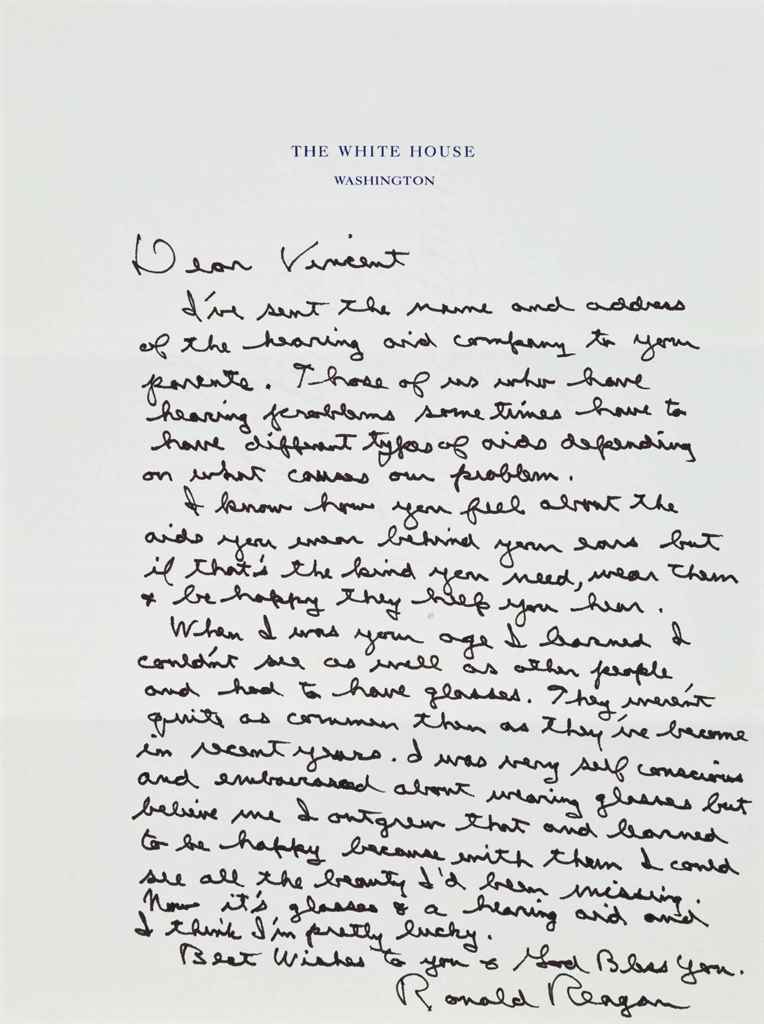 THE WHITE HOUSE
WASHINGTON
Dear Vincent
I've sent the name and address
of the hearing aid company to your
parents. Those of us who have
hearing problems some times have to
have different types of aids depending
on what causes our problem.
I know how you feel about the
aids you wear behind your ears but
if that's the kind you need, wear them
& be happy they help you hear.
When I was your age I learned I
couldn't see as well as other people
and had to have glasses. They weren't
quite as common then as they've become
in recent years. I was very self conscious
and embarassed about wearing glasses but
believe me I outgrew that and learned
to be happy because with them I could
see all the beauty I'd been missing.
Now it's glasses & a hearing aid and
I think I'm pretty lucky.
Best Wishes to you & God Bless You.
Ronald Reagan